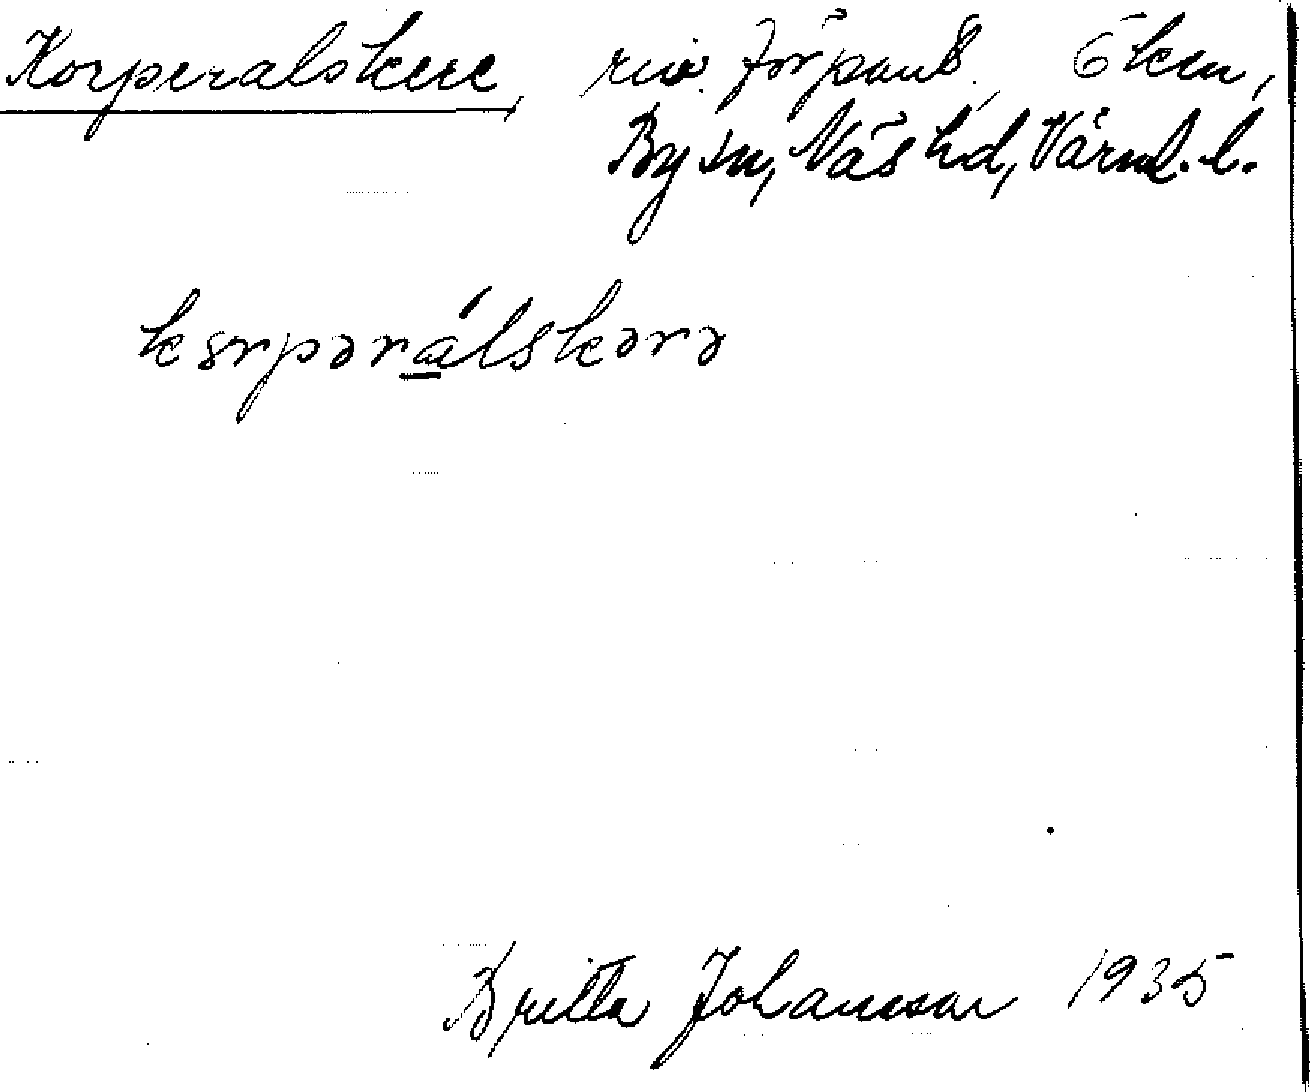 Korperalskere, riv. förpant. Öken,
By sn, Näs hd, Värml. l.
korpərálskərə
Britta Johansson 1935